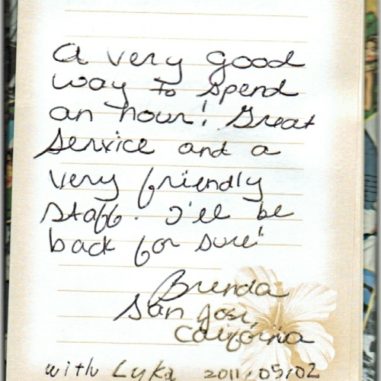 A very good
way to spend
an hour! Great
service and a
very friendly
staff. I'll be
back for sure!
Brenda
San Jose,
California
with Lyka 2011.05.02